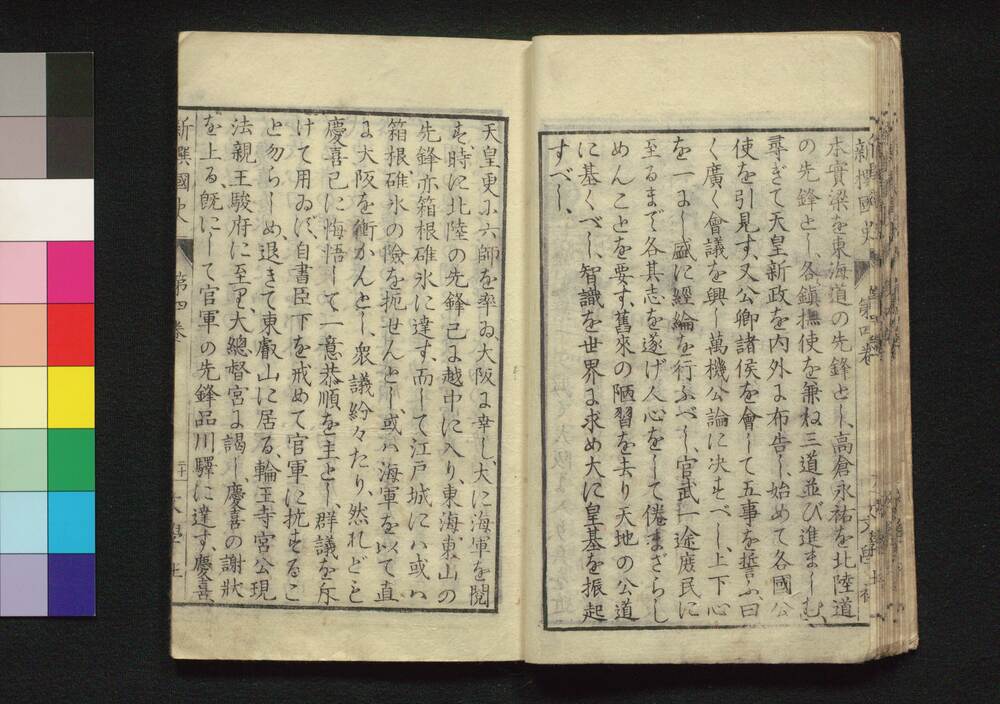 新撰國史 第四卷
本實梁を東海道の先鋒とし、高倉永祐を北陸道
の先鋒とし、各鎭撫使を兼ね三道並び進ましむ、
尋ぎて天皇新政を內外に布告し、始めて各國公
使を引見す、又公卿諸侯を會して五事を誓ふ、曰
く廣く會議を興し萬機公論に決すべし、上下心
を一にし盛に經綸を行ふべし、官武一途庶民に
至るまで各其志を遂げ人心をして倦まざらし
めんことを要す、舊來の陋習を去り天地の公道
に基くべし、智識を世界に求め大に皇基を振起
すべし、
天皇更に六師を率ゐ、大阪に幸し、大に海軍を閱
す、時に北陸の先鋒已に越中に入り、東海、東山の
先鋒亦箱根碓氷に達す、而して江戸城にハ或ハ
箱根碓氷の險を扼せんとし、或ハ海軍を以て直
に大阪を衝かんとし、衆議紛々たり、然れども
慶喜已に悔悟して一意恭順を主とし、群議を斥
けて用ゐず、自書臣下を戒めて官軍に抗するこ
と勿らしめ、退きて東叡山に居る、輪王寺宮公現
法親王駿府に至り、大總督宮に謁し、慶喜の謝狀
を上る、旣にして官軍の先鋒品川驛に達す、慶喜
新撰國史 第四卷 二十